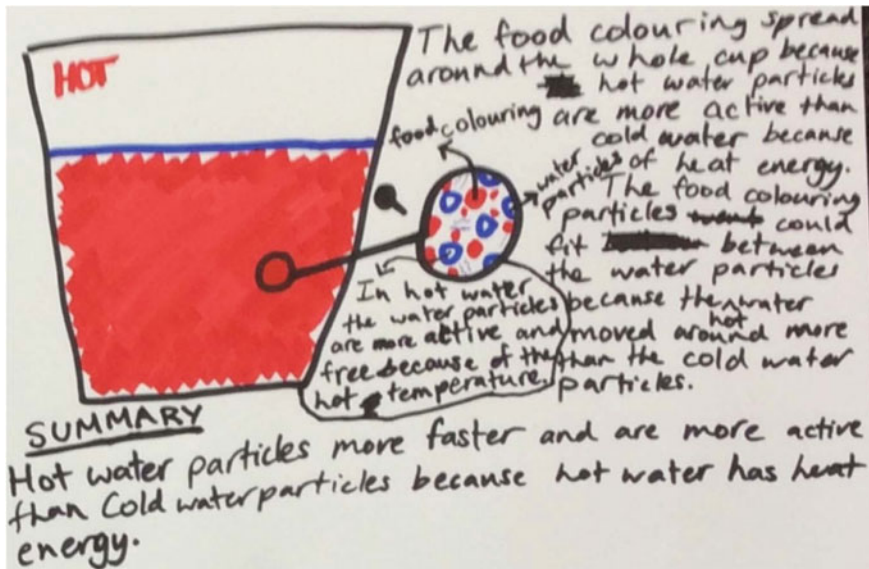 HOT
The food colouring spread
around the whole cup because
hot water particles
are more active than
cold water because
of heat energy.
The food colouring
particles could
fit between
the water particles
because the hot water
moved around more
than the cold water
particles.
food colouring
water
particles
In hot water
the water particles
are more active and
free because of the
hot temperature.
SUMMARY
Hot water particles more faster and are more active
than Cold water particles because hot water has heat
energy.